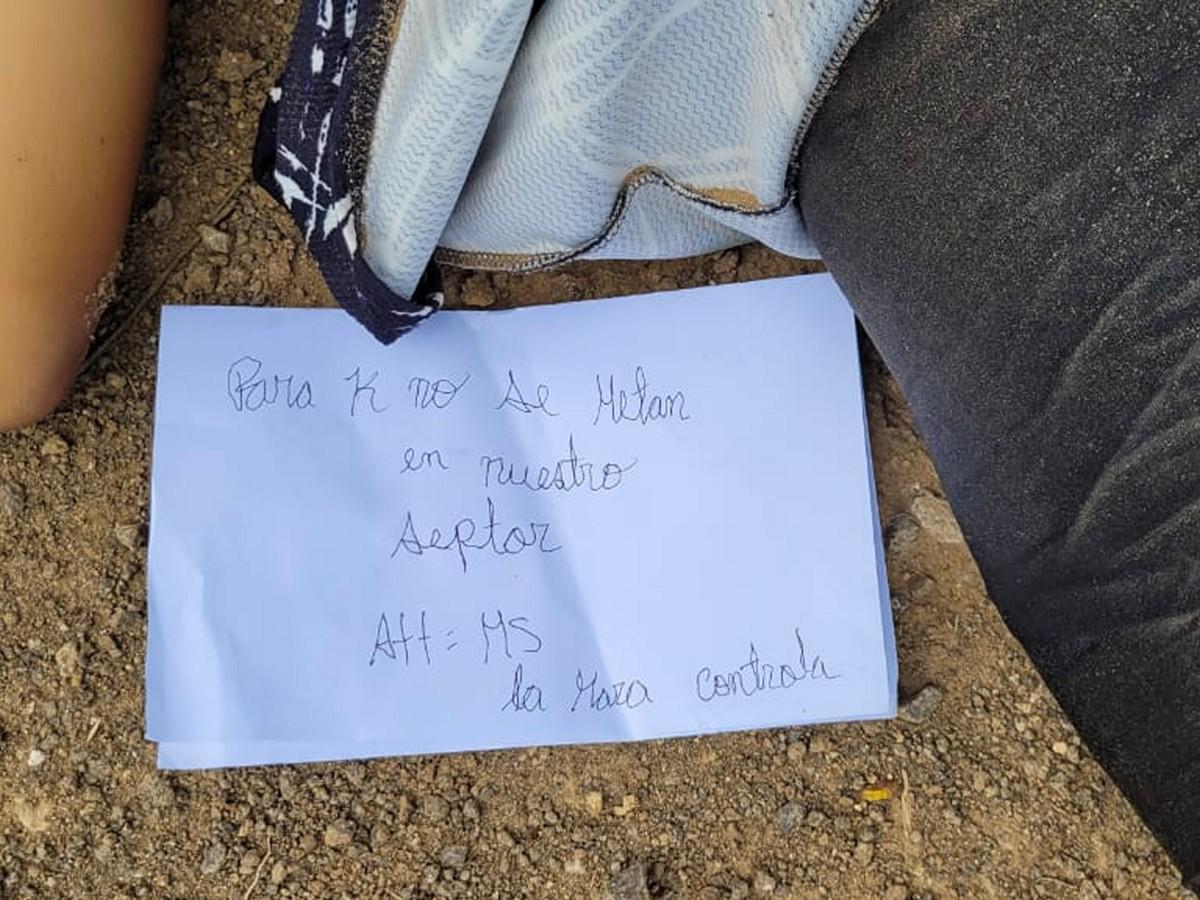 Para K no se Metan
en nuestro
septor
Att= MS
la Mara controla